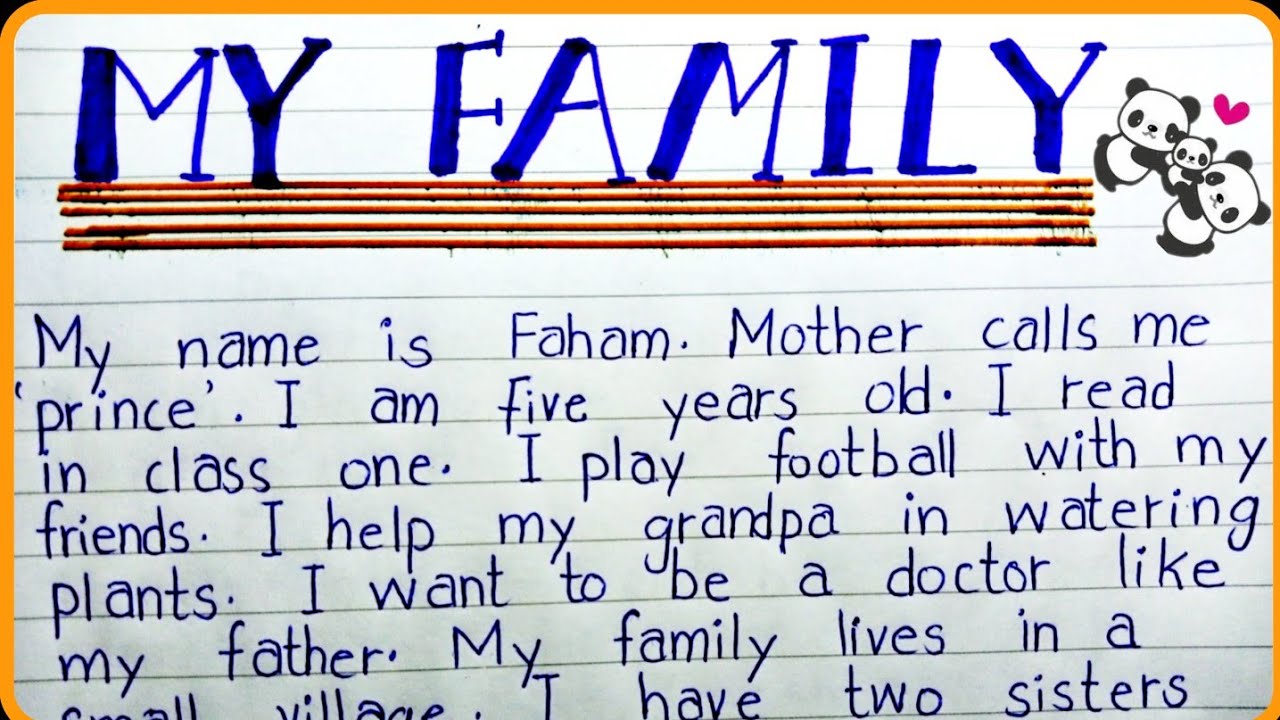 MY FAMILY
My name is Faham. Mother calls me
'prince'. I am five years old. I read
in class one. I play football with my
friends. I help my grandpa in watering
plants. I want to be a doctor like
my father. My family lives in a
small village. I have two sisters